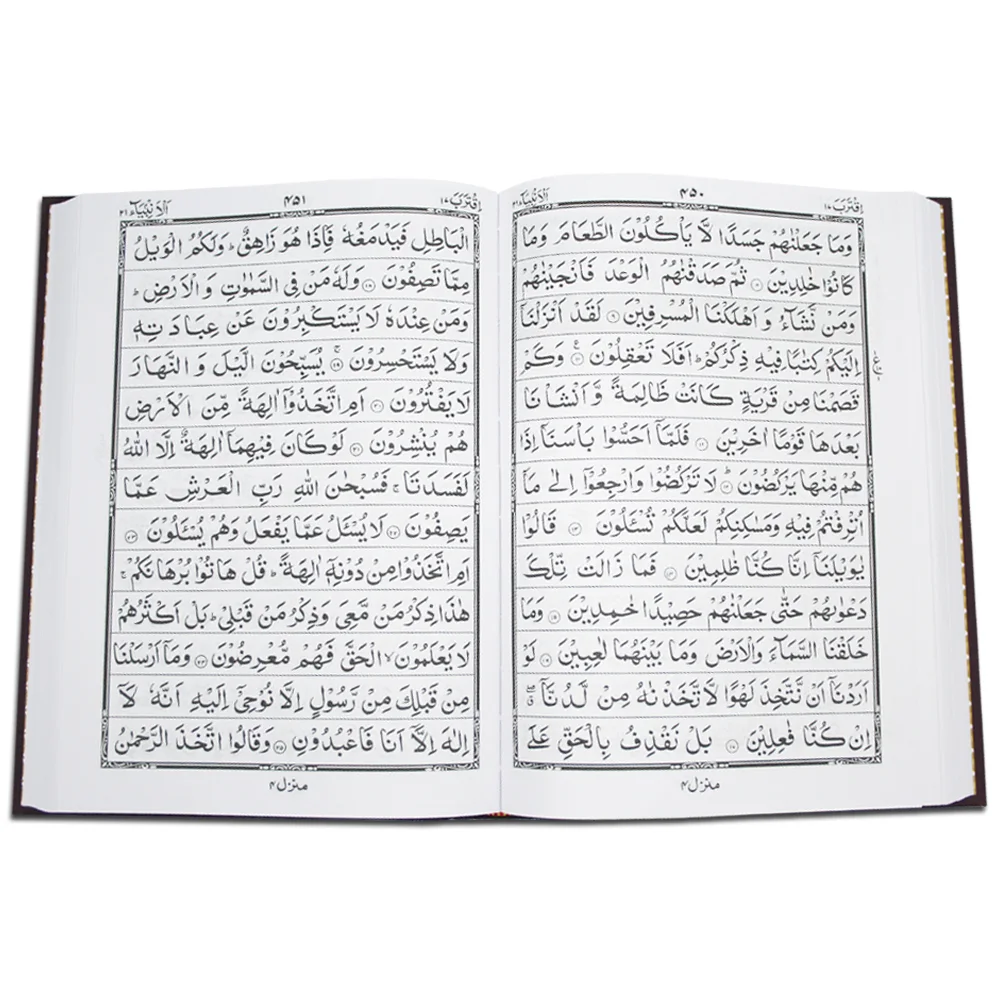 اِقْتَرَبَ ١٧
٤٥٠
اَلْاَنْۢبِيَآء ٢١
وَمَا جَعَلْنٰهُمْ جَسَدًا لَّا يَاْكُلُوْنَ الطَّعَامَ وَمَا
كَانُوْا خٰلِدِيْنَ ۝٨ ثُمَّ صَدَقْنٰهُمُ الْوَعْدَ فَاَنْجَيْنٰهُمْ
وَمَنْ نَّشَآءُ وَ اَهْلَكْنَا الْمُسْرِفِيْنَ ۝٩ لَقَدْ اَنْزَلْنَاۤ
اِلَيْكُمْ كِتٰبًا فِيْهِ ذِكْرُكُمْ ؕ اَفَلَا تَعْقِلُوْنَ ۝١٠ وَكَمْ
قَصَمْنَا مِنْ قَرْيَةٍ كَانَتْ ظَالِمَةً وَّ اَنْشَاْنَا
بَعْدَهَا قَوْمًا اٰخَرِيْنَ ۝١١ فَلَمَّاۤ اَحَسُّوْا بَاْسَنَاۤ اِذَا
هُمْ مِّنْهَا يَرْكُضُوْنَ ۝١٢ لَا تَرْكُضُوْا وَارْجِعُوْۤا اِلٰى مَاۤ
اُتْرِفْتُمْ فِيْهِ وَمَسٰكِنِكُمْ لَعَلَّكُمْ تُسْئَلُوْنَ ۝١٣ قَالُوْا
يٰوَيْلَنَاۤ اِنَّا كُنَّا ظٰلِمِيْنَ ۝١٤ فَمَا زَالَتْ تِّلْكَ
دَعْوٰىهُمْ حَتّٰى جَعَلْنٰهُمْ حَصِيْدًا خٰمِدِيْنَ ۝١٥ وَمَا
خَلَقْنَا السَّمَآءَ وَالْاَرْضَ وَمَا بَيْنَهُمَا لٰعِبِيْنَ ۝١٦ لَوْ
اَرَدْنَاۤ اَنْ نَّتَّخِذَ لَهْوًا لَّاتَّخَذْنٰهُ مِنْ لَّدُنَّاۤ
اِنْ كُنَّا فٰعِلِيْنَ ۝١٧ بَلْ نَقْذِفُ بِالْحَقِّ عَلَى
منزل ٤
اِقْتَرَبَ ١٧
٤٥١
اَلْاَنْۢبِيَآء ٢١
الْبَاطِلِ فَيَدْمَغُهٗ فَاِذَا هُوَ زَاهِقٌ ؕ وَلَكُمُ الْوَيْلُ
مِمَّا تَصِفُوْنَ ۝١٨ وَلَهٗ مَنْ فِى السَّمٰوٰتِ وَ الْاَرْضِ ؕ
وَمَنْ عِنْدَهٗ لَا يَسْتَكْبِرُوْنَ عَنْ عِبَادَتِهٖ
وَلَا يَسْتَحْسِرُوْنَ ۝١٩ يُسَبِّحُوْنَ الَّيْلَ وَ النَّهَارَ
لَا يَفْتُرُوْنَ ۝٢٠ اَمِ اتَّخَذُوْۤا اٰلِهَةً مِّنَ الْاَرْضِ
هُمْ يُنْشِرُوْنَ ۝٢١ لَوْ كَانَ فِيْهِمَاۤ اٰلِهَةٌ اِلَّا اللّٰهُ
لَفَسَدَتَا ۚ فَسُبْحٰنَ اللّٰهِ رَبِّ الْعَرْشِ عَمَّا
يَصِفُوْنَ ۝٢٢ لَا يُسْئَلُ عَمَّا يَفْعَلُ وَهُمْ يُسْئَلُوْنَ ۝٢٣
اَمِ اتَّخَذُوْا مِنْ دُوْنِهٖۤ اٰلِهَةً ؕ قُلْ هَاتُوْا بُرْهَانَكُمْ ۚ
هٰذَا ذِكْرُ مَنْ مَّعِىَ وَذِكْرُ مَنْ قَبْلِىْ ؕ بَلْ اَكْثَرُهُمْ
لَا يَعْلَمُوْنَ ۙ الْحَقَّ فَهُمْ مُّعْرِضُوْنَ ۝٢٤ وَمَاۤ اَرْسَلْنَا
مِنْ قَبْلِكَ مِنْ رَّسُوْلٍ اِلَّا نُوْحِىْۤ اِلَيْهِ اَنَّهٗ لَاۤ
اِلٰهَ اِلَّاۤ اَنَا فَاعْبُدُوْنِ ۝٢٥ وَقَالُوا اتَّخَذَ الرَّحْمٰنُ
منزل ٤